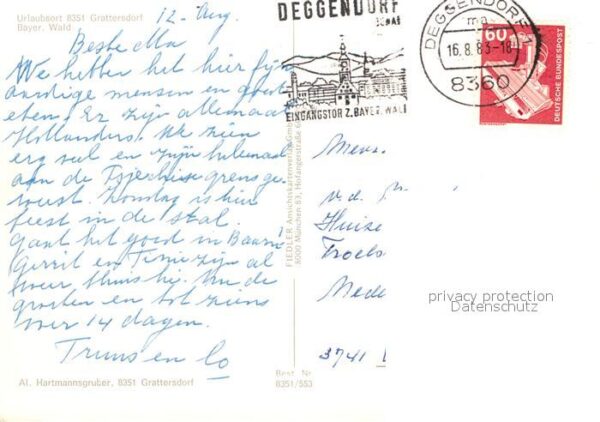 Urlaubsort 8351 Grattersdorf
Bayer. Wald
12 Aug.
Beste Ma
We hebben het hier fijn
aardige mensen en goed
eten. Er zijn allemaal
Hollanders. We zien
erg veel en zijn helemaal
aan de Tsjechise grens ge
weest. Zondag is hier
feest in de stal.
Gaat het goed in Baarn
Gerrit en Tinie zijn al
weer thuis hè. Nu de
groeten en tot ziens
over 14 dagen.
Truus en Co
Al. Hartmannsgruber, 8351 Grattersdorf
Best. Nr.
8351/553
FIEDLER Ansichtskartenverlag GmbH
8000 München 83, Hofangerstraße
DEGGENDORF
DONAU
EINGANGSTOR Z. BAYER. WALD
DEGGENDORF
16.8.83-18
8360
60
DEUTSCHE BUNDESPOST
Mevr.
v.d.
Huize
Troels
Nede
3741
privacy protection
Datenschutz